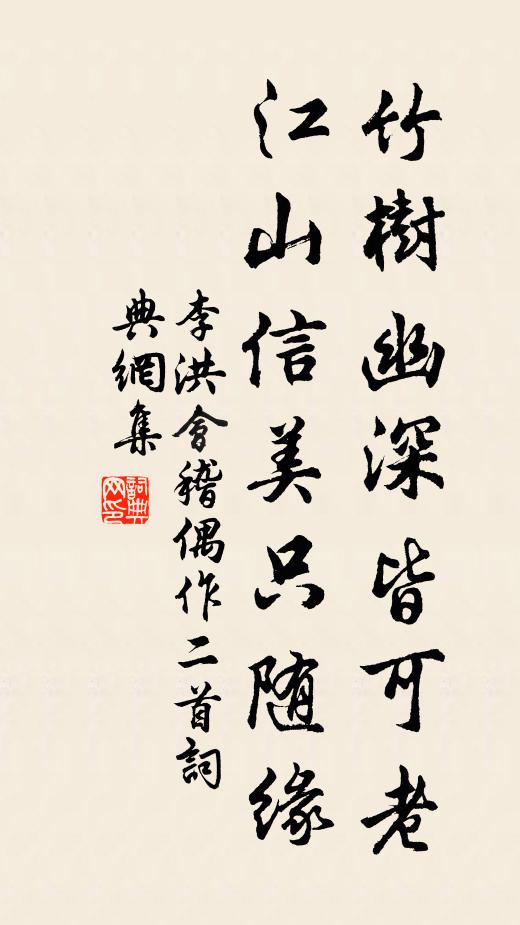 竹樹幽深皆可老
江山信美只随緣
李洪會稽偶作二首詞
典網集
詞典网印